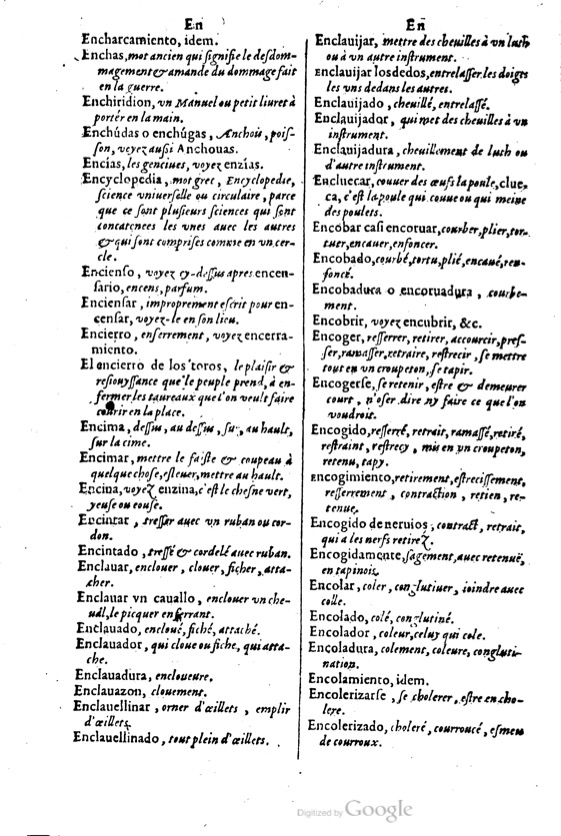 En
Encharcamiento, idem.
Enchas, mot ancien qui signifie le desdom-
magement & amande du dommage fait
en la guerre.
Enchiridion, vn Manuel ou petit liuret à
portér en la main.
Enchúdas o enchúgas, Anchois, pois-
son, voyez aussi Anchouas.
Encías, les genciues, voyez enzías.
Encyclopedia, mot grec, Encyclopedie,
science vniuerselle ou circulaire, parce
que ce sont plusieurs sciences qui sont
concatenees les vnes auec les autres
& qui sont comprises comme en vn cer-
cle.
Encienso, voyez cy-dessus apres encen-
sario, encens, parfum.
Enciensar, improprement escrit pour en-
censar, voyez-le en son lieu.
Encierro, enserrement, voyez encerra-
miento.
El encierro de los toros, le plaisir &
resiouyssance que le peuple prend, à en-
fermer les taureaux que l'on veult faire
courir en la place.
Encima, dessus, au dessus, sur, au hault,
sur la cime.
Encimar, mettre le faiste & coupeau à
quelque chose, esleuer, mettre au hault.
Encina, voyez enzina, c'est le chesne vert,
yeuse ou eouse.
Encintar, tresser auec vn ruban ou cor-
don.
Encintado, tressé & cordelé auec ruban.
Enclauar, enclouer, clouer, ficher, atta-
cher.
Enclauar vn cauallo, enclouer vn che-
ual, le picquer en ferrant.
Enclauado, encloué, fiché, attaché.
Enclauador, qui cloue ou fiche, qui atta-
che.
Enclauadura, encloueure.
Enclauazon, clouement.
Enclauellinar, orner d'œillets, emplir
d'œillets.
Enclauellinado, tout plein d'œillets.
En
Enclauijar, mettre des cheuilles à vn luth
ou à vn autre instrument.
Enclauijar los dedos, entrelasser les doigts
les vns dedans les autres.
Enclauijado, cheuillé, entrelassé.
Enclauijador, qui met des cheuilles à vn
instrument.
Enclauijadura, cheuillement de luth ou
d'autre instrument.
Encluecar, couuer des œufs la poule, clue,
ca, c'est la poule qui couue ou qui meine
des poulets.
Encobar casi encoruar, courber, plier, tor-
tuer, encauer, enfoncer.
Encobado, courbé, tortu, plié, encaué, ren-
foncé.
Encobadura o encoruadura, courbe-
ment.
Encobrir, voyez encubrir, &c.
Encoger, resserrer, retirer, accourcir, pres-
ser, ramasser, retraire, restrecir, se mettre
tout en vn croupeton, se tapir.
Encogerse, se retenir, estre & demeurer
court, n'oser dire ny faire ce que l'on
voudroit.
Encogido, resserré, retrait, ramassé, retiré,
restraint, restrecy, mis en vn croupeton,
retenu, tapy.
Encogimiento, retirement, estrecissement,
resserrement, contraction, retien, re-
tenue.
Encogido de neruios, contract, retrait,
qui a les nerfs retirez.
Encogidamente, sagement, auec retenuë,
en tapinois.
Encolar, coler, conglutiuer, ioindre auec
colle.
Encolado, colé, conglutiné.
Encolador, coleur, celuy qui cole.
Encoladura, colement, coleure, congluti-
nation.
Encolamiento, idem.
Encolerizarse, se cholerer, estre en cho-
lere.
Encolerizado, choleré, courroucé, esmeu
de courroux.
Digitized by Google